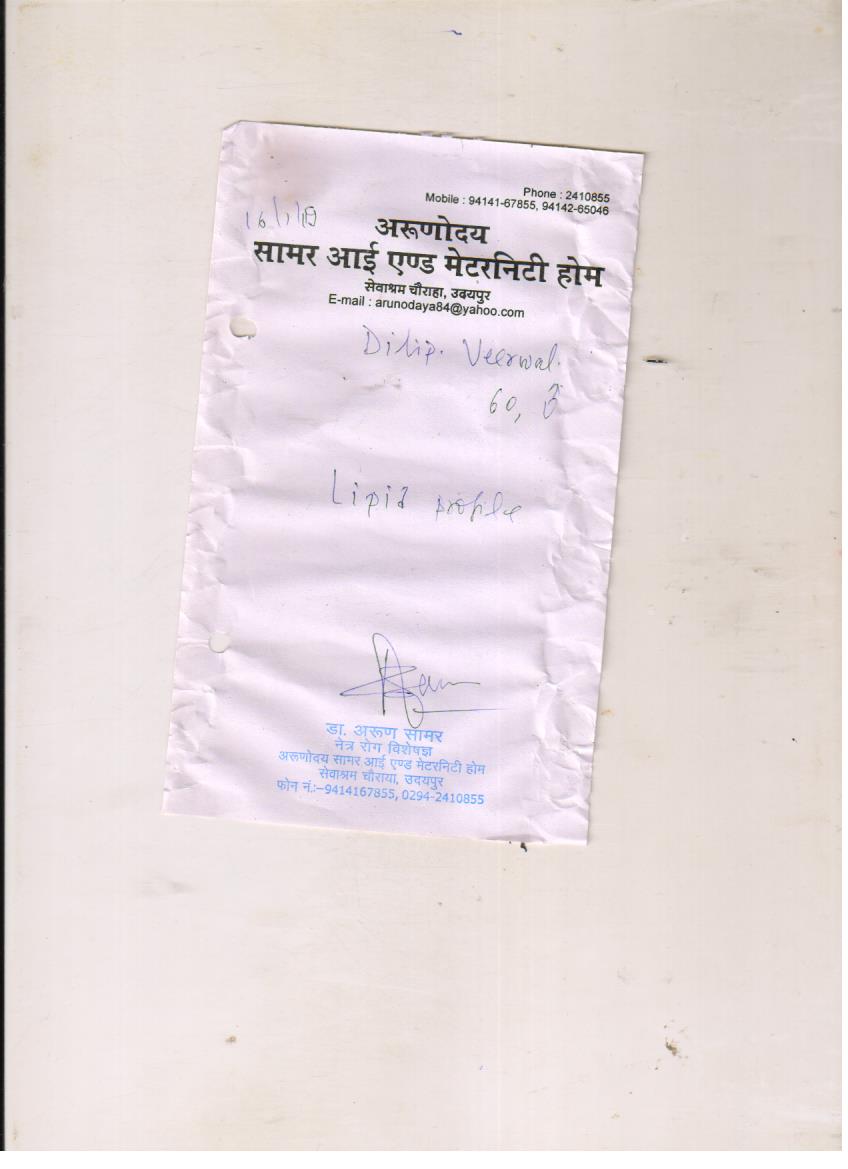 Phone : 2410855
Mobile : 94141-67855, 94142-65046
16/1/19
अरूणोदय
सामर आई एण्ड मेटरनिटी होम
सेवाश्रम चौराहा, उदयपुर
E-mail : arunodaya84@yahoo.com
Dilip. Veerwal.
60,
Lipid profile
डा. अरूण सामर
नेत्र रोग विशेषज्ञ
अरूणोदय सामर आई एण्ड मेटरनिटी होम
सेवाश्रम चौराया, उदयपुर
फोन नं.:–9414167855, 0294-2410855